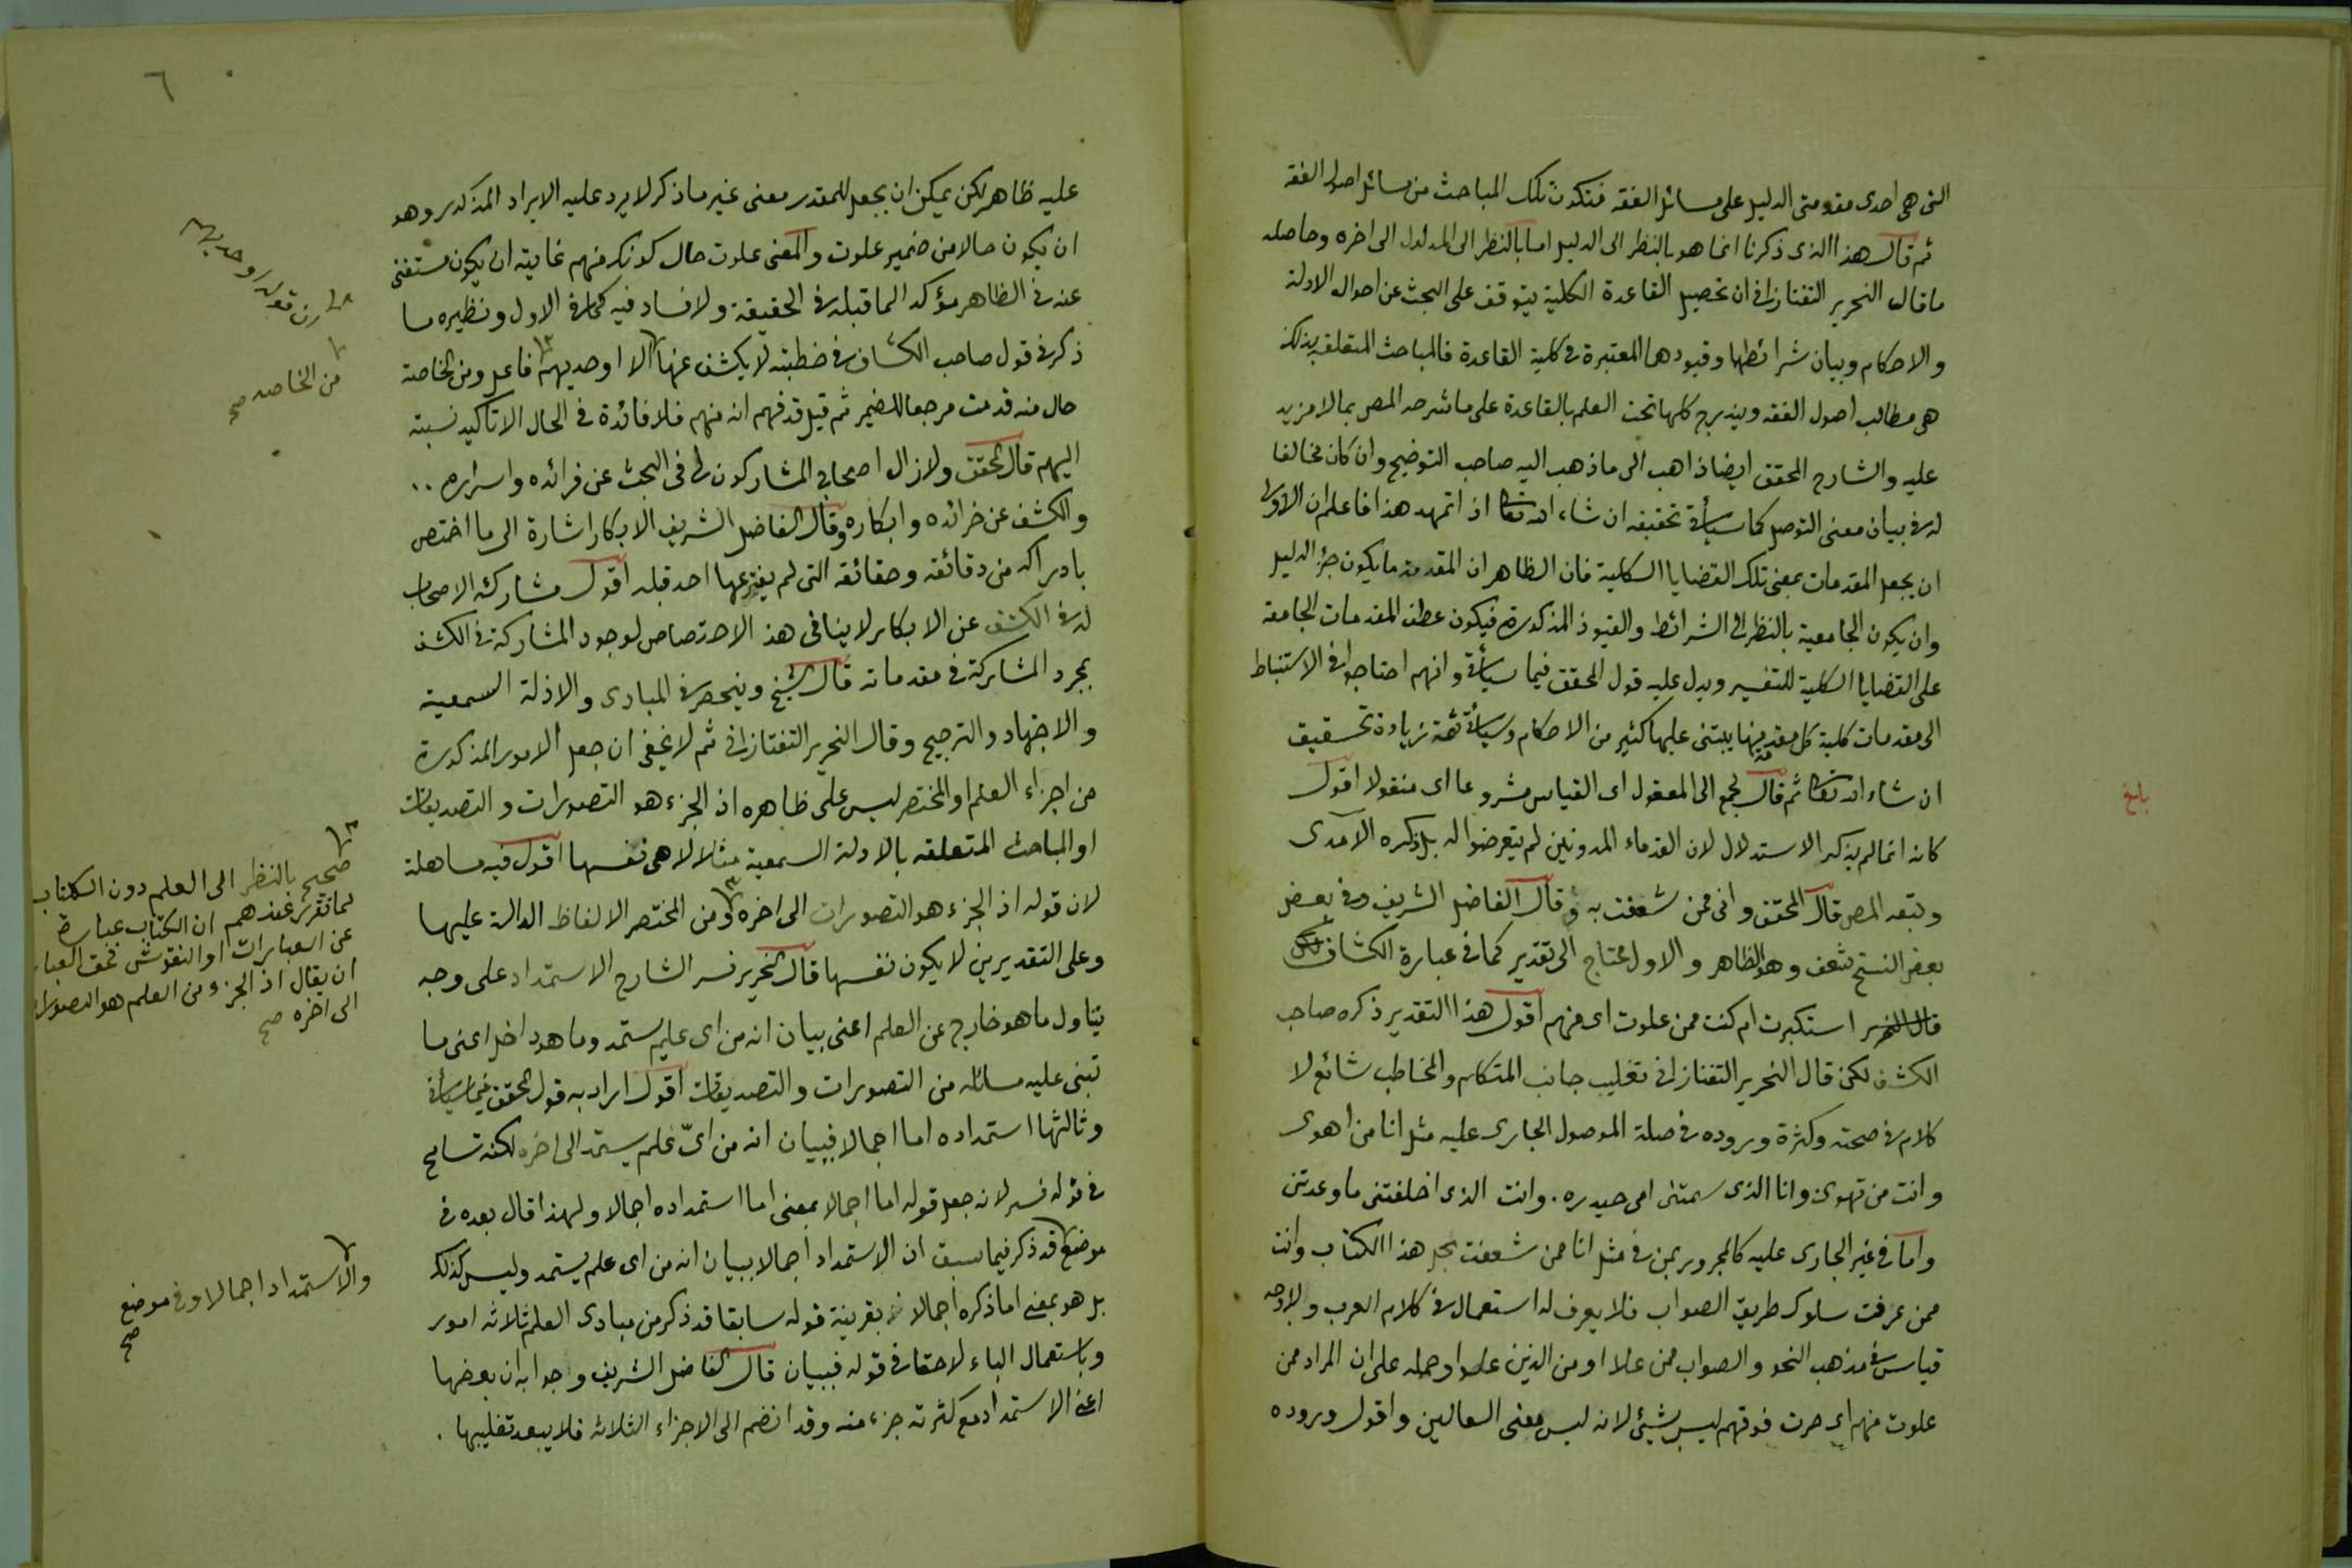 التى هى احدى مقدمتى الدليل على مسائل الفقه فتكون تلك المباحث من مسائل اصول الفقه
ثم قال هذا الذى ذكرنا انما هو بالنظر الى الدليل اما بالنظر الى المدلول الى اخره وحاصله
ما قال النحرير التفتازانى ان تحصيل القاعدة الكلية يتوقف على البحث عن احوال الادلة
والاحكام وبيان شرائطها وقيودها المعتبرة فى كلية القاعدة فالمباحث المتعلقة بذلك
هى مطالب اصول الفقه ويندرج كلها تحت العلم بالقاعدة على ما شرحه المص بما لا مزيد
عليه والشارح المحقق ايضا ذاهب الى ما ذهب اليه صاحب التوضيح وان كان مخالفا
له فى بيان معنى التوصل كما سيأتى تحقيقه ان شاء الله تعا اذا تمهد هذا فاعلم ان الاولى
ان يجعل المقدمات بمعنى تلك القضايا الكلية فان الظاهر ان المقدمة ما يكون جزء الدليل
وان يكون الجامعية بالنظر الى الشرائط والقيود المذكورة فيكون عطف المقدمات الجامعة
على القضايا الكلية للتفسير ويدل عليه قول المحقق فيما سيأتى وانهم احتاجوا فى الاستنباط
الى مقدمات كلية كل مقدمة منها يبتنى عليها كثير من الاحكام وسيأتى ثمة زيادة تحقيق
ان شاء الله تعا ثم قال لجمع الى المعقول اى القياس مشروعا اى منقولا اقول
كانه انما لم يذكر الاستدلال لان القدماء المدونين لم يتعرضوا له بل ذكره الآمدى
وتبعه المص قال المحقق وانى ممن شعفت به وقال الفاضل الشريف وفى بعض
بعض النسخ شعف وهو الظاهر والاول محتاج الى تقدير كما فى عبارة الكشاف
استكبرت ام كنت ممن علوت اى منهم اقول هذا التقدير ذكره صاحب
الكشف لكن قال النحرير التفتازانى تغليب جانب المتكلم والمخاطب شائع لا
كلام فى صحته وكثرة وروده فى صلة الموصول الجارى عليه مثل انا من اهوى
وانت من تهوى وانا الذى سمتنى امى حيدره . وانت الذى اخلفتنى ما وعدتنى
واما فى غير الجارى عليه كالمجرور بمن فى مثل انا ممن شعفت بحل هذا الكتاب وانت
ممن عرفت سلوك طريق الصواب فلا يعرف له استعمال فى كلام العرب ولا وجه
قياس فى مذهب النحو والصواب ممن علا او من الذين علوا وحمله على ان المراد ممن
علوت منهم اى صرت فوقهم ليس بشيئ لانه ليس معنى العالين واقول وروده
بلغ
٦
عليه ظاهر لكن يمكن ان يجعل للمقدر معنى غير ما ذكر لا يرد عليه الايراد المذكور وهو
ان يكون حالا من ضمير علوت والمعنى علوت حال كونك منهم غايته ان يكون مستغنى
عنه فى الظاهر مؤكدا لما قبله فى الحقيقة ولا فساد فيه كما فى الاول ونظيره ما
ذكر فى قول صاحب الكشاف فى خطبته لا يكشف عنها الا اوحديهم فاعل ومن الخاصة
حال منه قدمت مرجعا للضمير ثم قيل قد فهم انه منهم فلا فائدة فى الحال الا تأكيد نسبته
اليهم قال المحقق ولا زال اصحابى المشاركون لى فى البحث عن فرائده واسراره ..
والكشف عن خرائده وابكاره وقال الفاضل الشريف الابكار اشارة الى ما اختص
بادراكه من دقائقه وحقائقه التى لم يفترعها احد قبله اقول مشاركة الاصحاب
له فى الكشف عن الابكار لا ينافى هذا الاختصاص لوجود المشاركة فى الكشف
بمجرد المشاركة فى مقدماته قال الشيخ وينحصر فى المبادى والادلة السمعية
والاجتهاد والترجيح وقال النحرير التفتازانى ثم لا يخفى ان جعل الامور المذكورة
من اجزاء العلم او المختصر ليس على ظاهره اذ الجزء هو التصورات والتصديقات
او المباحث المتعلقه بالادلة السمعية مثلا لا هى نفسها اقول فيه مساهلة
لان قوله اذ الجزء هو التصورات الى اخره ومن المختصر الالفاظ الدالة عليها
وعلى التقديرين لا يكون نفسها قال النحرير فسر الشارح الاستمداد على وجه
يتناول ما هو خارج عن العلم اعنى بيان انه من اى علم يستمد وما هو داخل اعنى ما
تبنى عليه مسائله من التصورات والتصديقات اقول اراد به قول المحقق فيما سيأتى
وثالثها استمداده اما اجمالا فبيان انه من اىّ علم يستمد الى اخره لكنه تسامح
فى قوله فسر لانه جعل قوله اما اجمالا بمعنى اما استمداده اجمالا ولهذا قال بعده فى
موضع قد ذكر فيما سبق ان الاستمداد اجمالا ببيان انه من اى علم يستمد وليس كذلك
بل هو بمعنى اما ذكره اجمالا بقرينة قوله سابقا قد ذكر من مبادى العلم ثلاثه امور
وباستعمال الباء لاحقا فى قوله فببيان قال الفاضل الشريف وجوابه ان بعضها
اعنى الاستمداد مع كثرته جزء منه وقد انضم الى الاجزاء الثلاثة فلا يبعد تغليبها .
قوله اوحديهم
من الخاصه صح
صحيح بالنظر الى العلم دون الكتاب
لما تقرر عندهم ان الكتاب عبارة
عن العبارات او النقوش فحق العبا
ان يقال اذ الجزء من العلم هو التصورات
الى اخره صح
والاستمداد اجمالا وفى موضع
صح